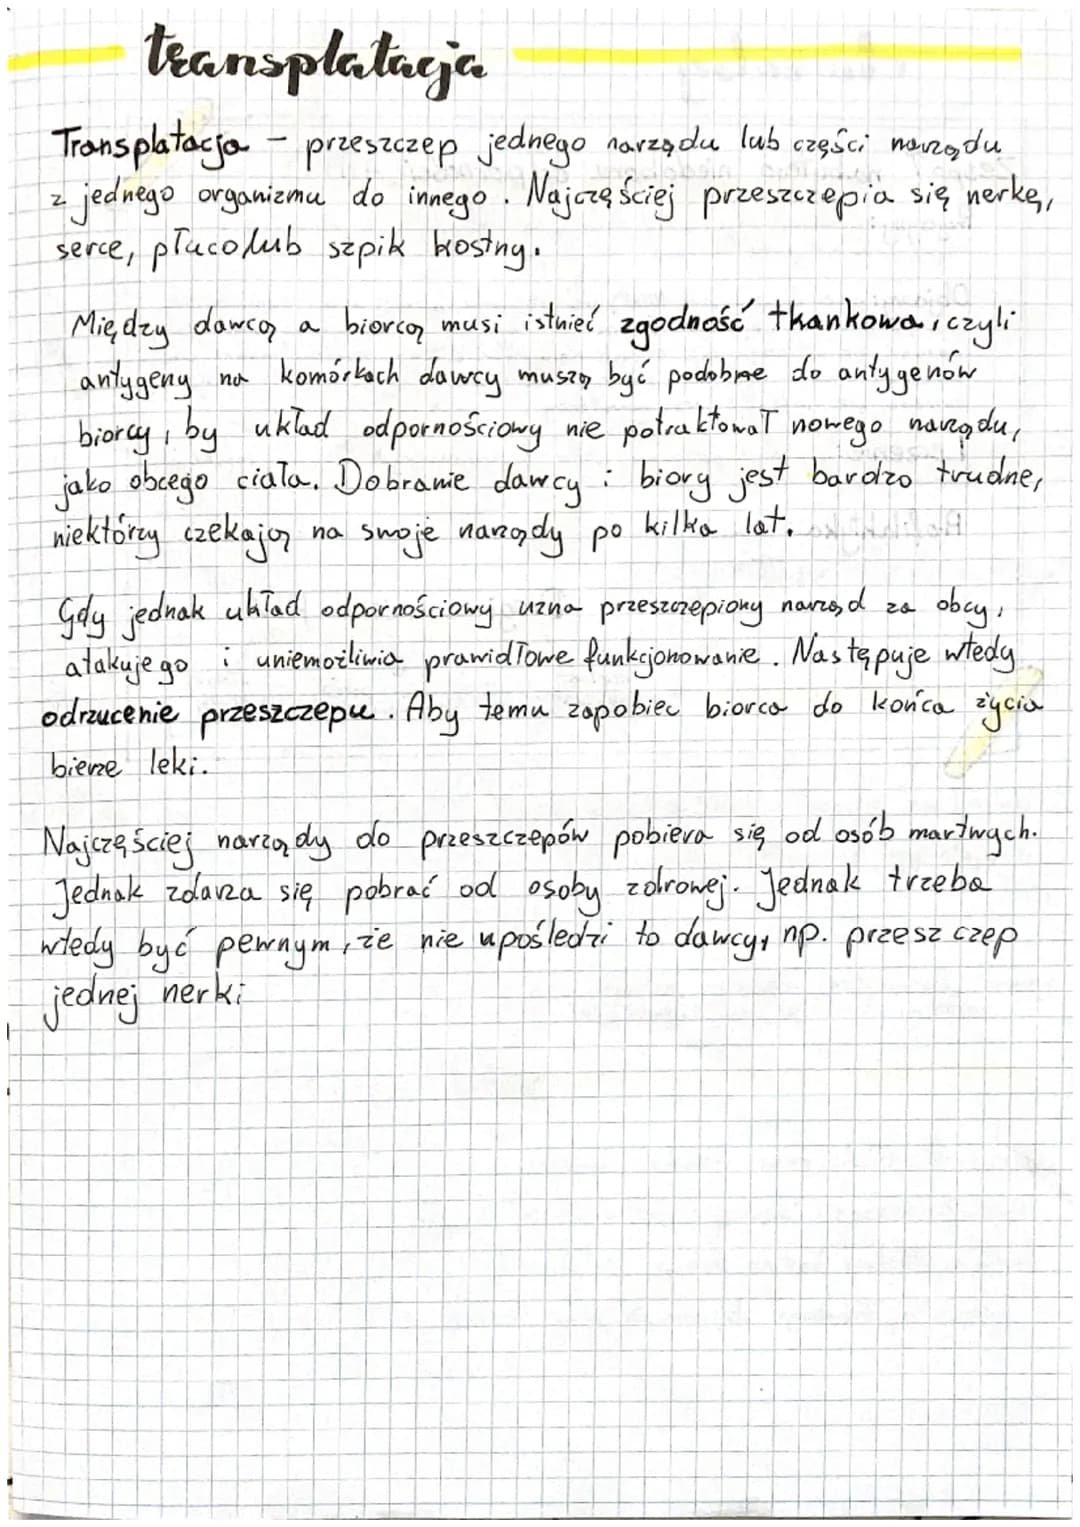 transplatacja
Transplatacja - przeszczep jednego narządu lub części narządu
z jednego organizmu do innego. Najczęściej przeszczepia się nerkę,
serce, płuco lub szpik kostny.
Między dawcą a biorcą musi istnieć zgodność tkankowa, czyli
antygeny na komórkach dawcy muszą być podobne do antygenów
biorcy, by układ odpornościowy nie potraktował nowego narządu,
jako obcego ciała. Dobranie dawcy i biory jest bardzo trudne,
niektórzy czekają na swoje narządy po kilka lat.
Gdy jednak układ odpornościowy uzna przeszczepiony narząd za obcy,
atakuje go i uniemożliwia prawidłowe funkcjonowanie. Następuje wtedy
odrzucenie przeszczepu. Aby temu zapobiec biorca do końca życia
bierze leki.
Najczęściej narządy do przeszczepów pobiera się od osób martwych.
Jednak zdarza się pobrać od osoby zdrowej. Jednak trzeba
wtedy być pewnym, że nie upośledzi to dawcy, np. przeszczep
jednej nerki